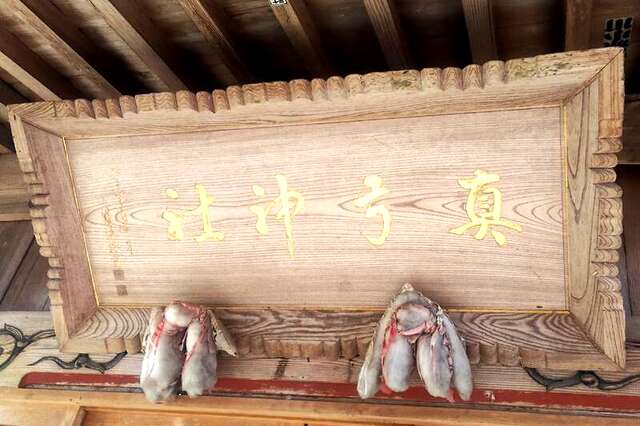 真弓神社